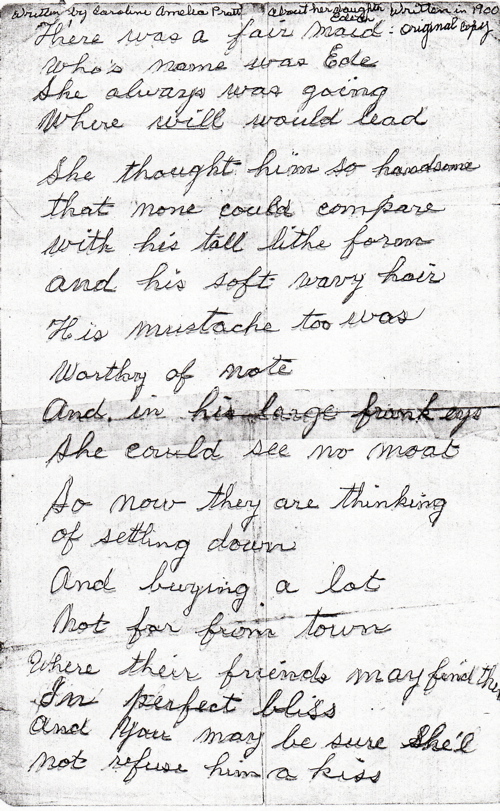 Written by Caroline Amelia Pratt about her daughter Edith Written in 1900
original copy
There was a fair maid:
Who's name was Ede
She always was going
Where will would lead
She thought him so handsome
that none could compare
with his tall lithe form
and his soft wavy hair
His mustache too was
Worthy of note
And. in his large frank eys
She could see no moat
So now they are thinking
of settling down
And buying a lot
Not far from town
Where their friends may find them
In perfect bliss
And you may be sure she'l
not refuse him a kiss